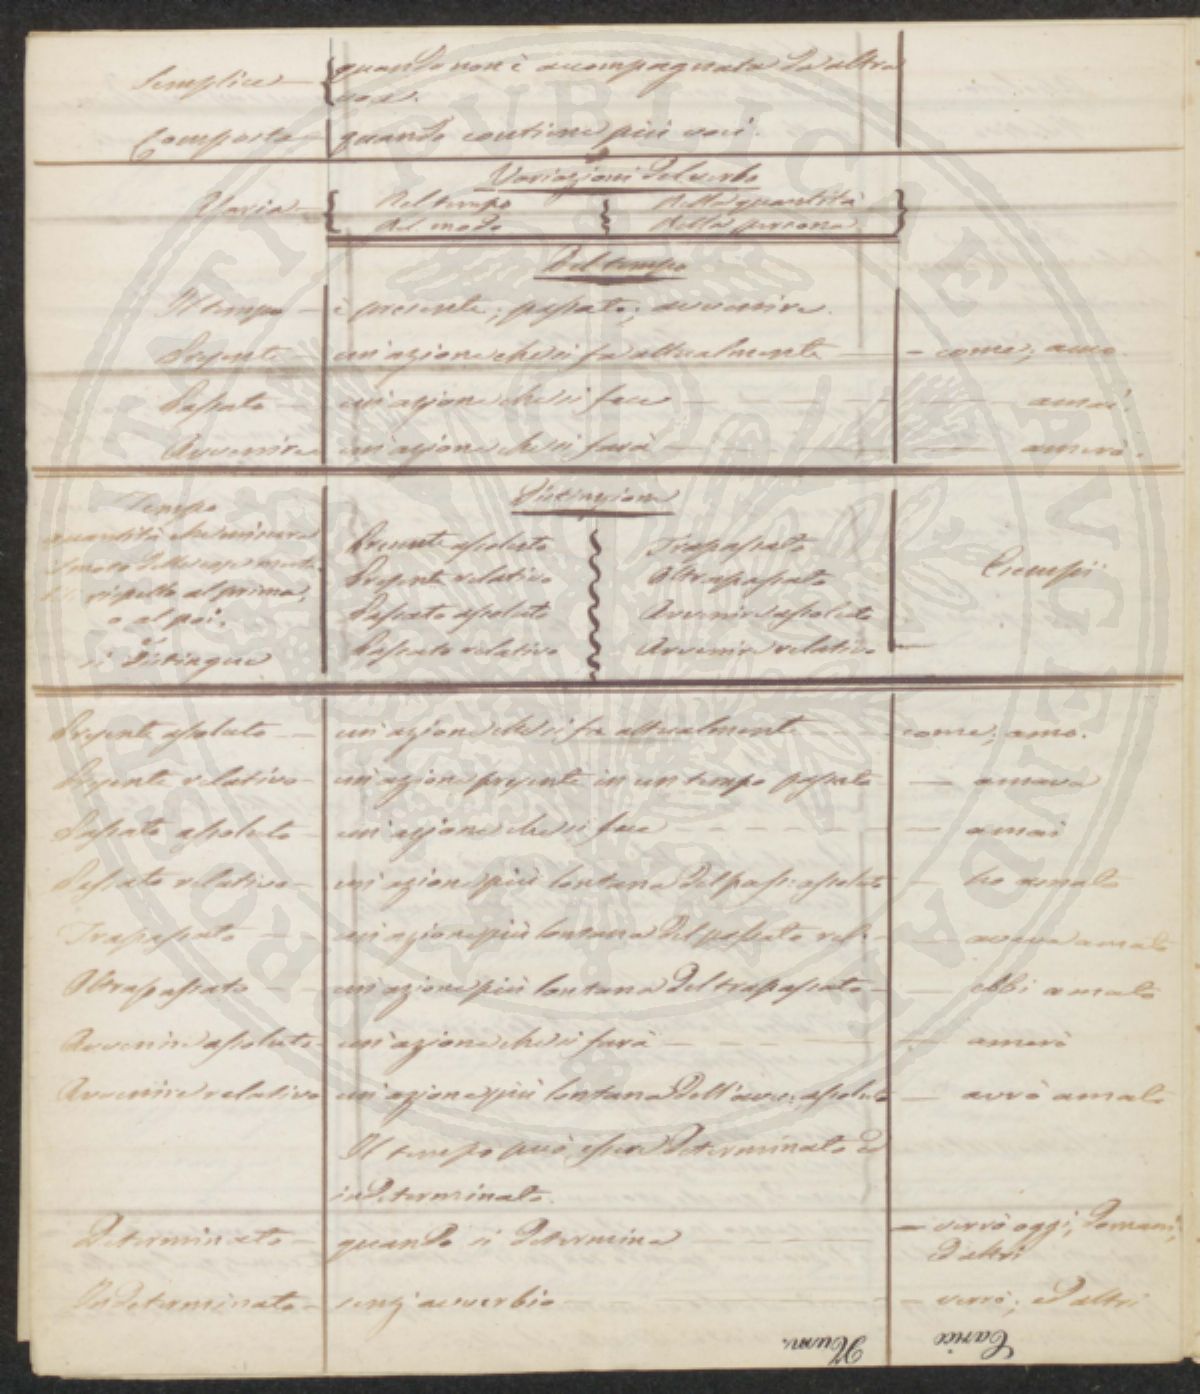 Semplice — quando non è accompagnata da altra
voce.
Composta — quando contiene più voci.
Variazioni del verbo
Varia — Nel tempo Nella quantità
Nel modo Nella persona
Del tempo
Il tempo — è presente; passato; avvenire.
Presente — un'azione che si fa attualmente — come; amo.
Passato — un'azione che si fece — amai.
Avvenire un'azione che si farà — amerò.
Distinzione
Tempo
quantità che misura
rispetto al prima,
o al poi.
si distingue
Presente assoluto Trapassato
Presente relativo Oltrapassato
Passato assoluto Avvenire assoluto
Passato relativo Avvenire relativo
Esempii
Presente assoluto — un'azione che si fa attualmente — come; amo.
Presente relativo — un'azione presente in un tempo passato — amava
Passato assoluto — un'azione che si fece — amai
Passato relativo — un'azione più lontana del pass: assoluto — ho amato
Trapassato — un'azione più lontana del passato rel: — aveva amato
Oltrapassato — un'azione più lontana del trapassato — ebbi amato
Avvenire assoluto — un'azione che si farà — amerò
Avvenire relativo un'azione più lontana dell'avv: assoluto — avrò amato
Il tempo può essere determinato ed
indeterminato.
Determinato — quando si determina — verrò oggi, domani;
ed altri
Indeterminato — senz'avverbio — verrò; ed altri
Num. Carice
PROSPERITATI PUBLICAE AUGENDAE